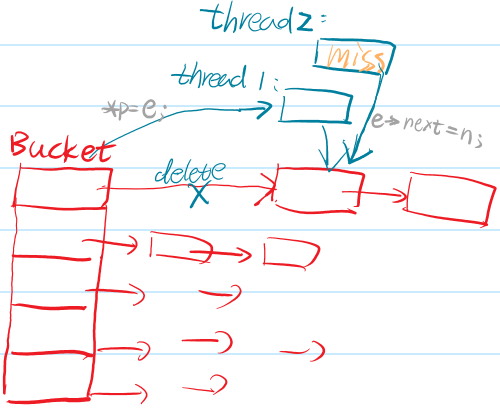 thread2:
miss
thread 1:
*p=e;
e→next=n;
Bucket
delete